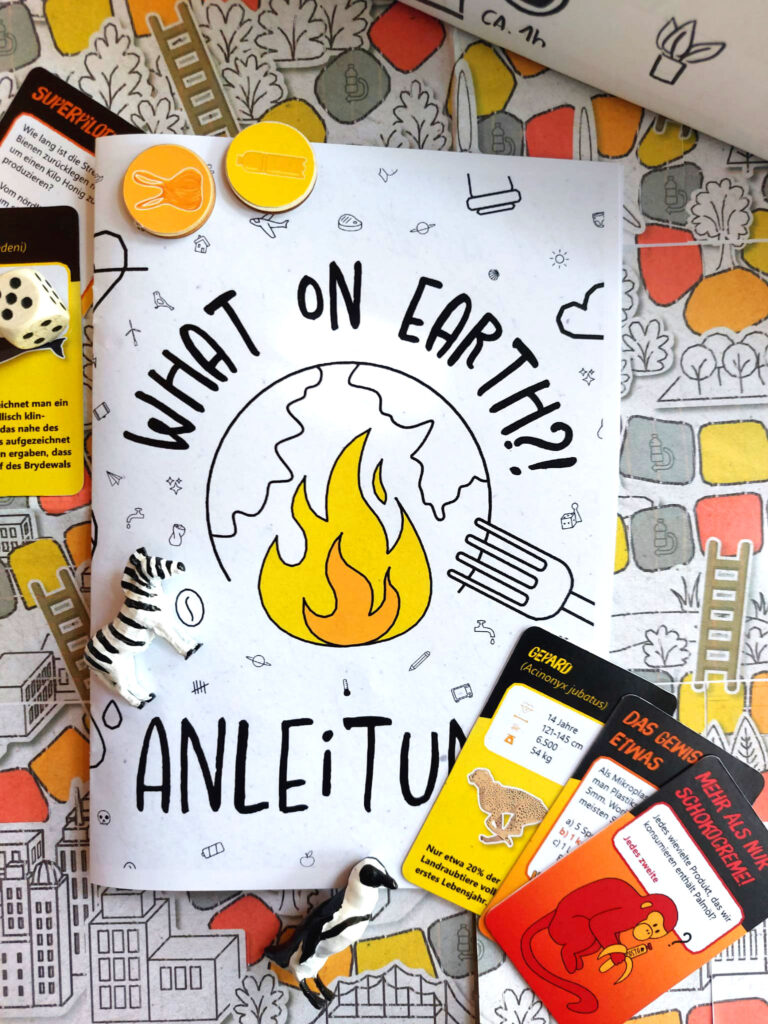 CA. 1h
SUPERPILOT
Wie lang ist die Stre
Bienen zurücklegen
um einen Kilo Honig zu
produzieren?
Vom nördl
um
WHAT ON EARTH?!
edeni)
eichnet man ein
llisch klin-
das nahe des
s aufgezeichnet
en ergaben, dass
f des Brydewals
ANLEITUN
GEPARD
(Acinonyx jubatus)
14 Jahre
121-145 cm
6.500
54 kg
Nur etwa 20% der
Landraubtiere voll
erstes Lebensjahr.
DAS GEWIS
ETWAS
Als Mikropla
man Plastik
5mm. Wor
meisten S
a) 5 Sp
b) 1 k
c) 1 L
MEHR ALS NUR
SCHOKOCREME!
Jedes wievielte Produkt, das wir
konsumieren enthält Palmöl?
Jedes zweite
?